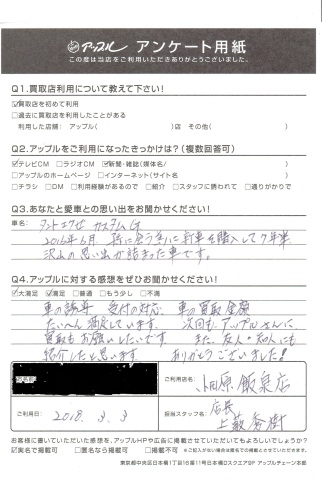 アップル アンケート用紙
この度は当店をご利用いただきありがとうございました。
Q1.買取店利用について教えて下さい!
☑買取店を初めて利用
□過去に買取店を利用したことがある
利用した店舗: アップル( )店 その他( )
Q2.アップルをご利用になったきっかけは?(複数回答可)
☑テレビCM □ラジオCM ☑新聞・雑誌(媒体名/ )
□アップルのホームページ □インターネット(サイト名 )
□チラシ □DM □利用経験があるので □紹介 □スタッフに誘われて □通りがかりで
Q3.あなたと愛車との思い出をお聞かせください!
車名: タントエグゼ カスタムG
2016年6月 孫に会う為に新車を購入して
沢山の思い出が詰まった車です。
Q4.アップルに対する感想をぜひお聞かせください!
☑大満足 ☑満足 □普通 □もう少し □不満
車の誘導 受付の対応 車の買取金額
たいへん満足しています。 次回もアップルさんに
買取もお願いしたいです また、友人・知人にも
紹介したと思います ありがとうございました!
ご利用店名: 小田原飯泉店
ご利用日: 2018. 3. 3
担当スタッフ名: 店長
上薮秀樹
お客様に書いていただいた感想を、アップルHPや広告に掲載させていただいてもよろしいでしょうか?
☑実名で掲載可 □匿名なら掲載可 □掲載不可 ※ご記入がない場合は匿名での掲載とさせていただきます。
東京都中央区日本橋1丁目16番11号日本橋Dスクエア5F アップルチェーン本部